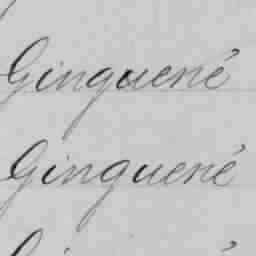 Ginguené
Ginguené